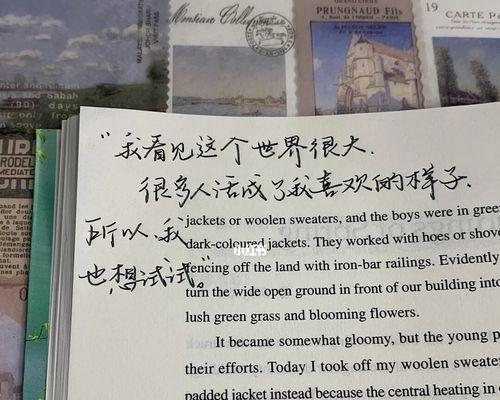 Montian Collection
PRUNGNAUD Fils
PARIS
19
CARTE P
and Sabah
days
IMMEDIATE
"我看见这个世界很大.
很多人活成了我喜欢的样子.
所以、我
也想试试。"
jackets or woolen sweaters, and the boys were in gree
dark-coloured jackets. They worked with hoes or shove
fencing off the land with iron-bar railings. Evidently
turn the wide open ground in front of our building into
lush green grass and blooming flowers.
It became somewhat gloomy, but the young p
their efforts. Today I took off my woolen sweater
padded jacket instead because the central heating in o